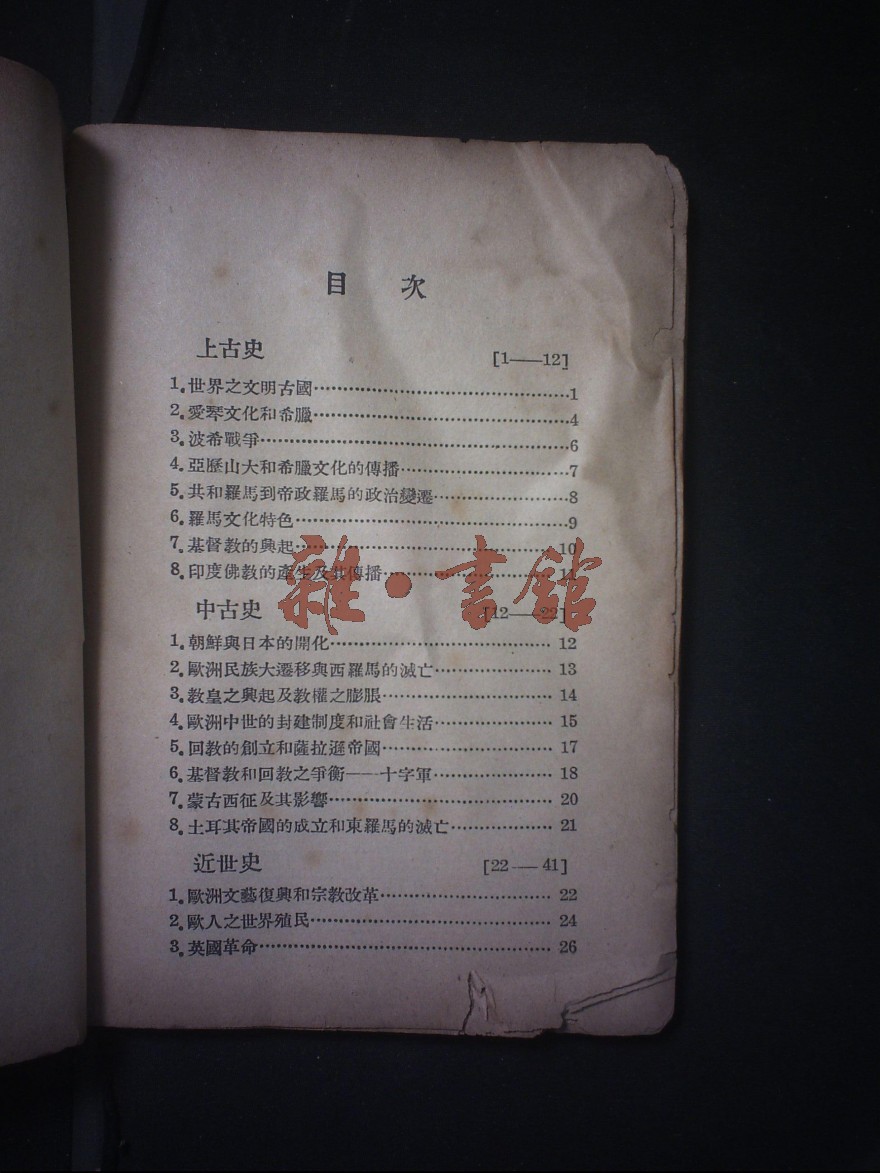 目 次
上古史 [1——12]
1.世界之文明古國……………………………………1
2.愛琴文化和希臘……………………………………4
3.波希戰爭……………………………………………6
4.亞歷山大和希臘文化的傳播………………………7
5.共和羅馬到帝政羅馬的政治變遷…………………8
6.羅馬文化特色………………………………………9
7.基督教的興起……………………………………10
8.印度佛教的產生及其傳播………………………11
雜·書館
中古史 [12——22]
1.朝鮮與日本的開化………………………………12
2.歐洲民族大遷移與西羅馬的滅亡………………13
3.教皇之興起及教權之膨脹………………………14
4.歐洲中世的封建制度和社會生活………………15
5.回教的創立和薩拉遜帝國………………………17
6.基督教和回教之爭衡——十字軍………………18
7.蒙古西征及其影響………………………………20
8.土耳其帝國的成立和東羅馬的滅亡……………21
近世史 [22——41]
1.歐洲文藝復興和宗教改革………………………22
2.歐人之世界殖民…………………………………24
3.英國革命…………………………………………26